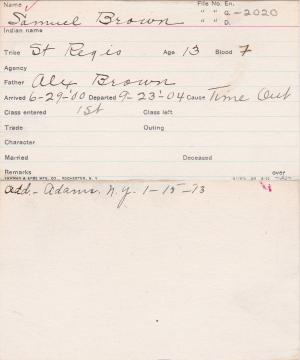 Name Samuel Brown File No. En.
" " a. -2020
" " D.
Indian name
Tribe St Regis Age 13 Blood
Agency
Father Alex Brown
Arrived 6-29-'00 Departed 9-23-'04 Cause Time Out
Class entered 1st Class left
Trade Outing
Character
Married Deceased
Remarks over
YAWMAN & ERBE MFG. CO., ROCHESTER, N. Y.
Add.- Adams, N.Y. 1-15-13